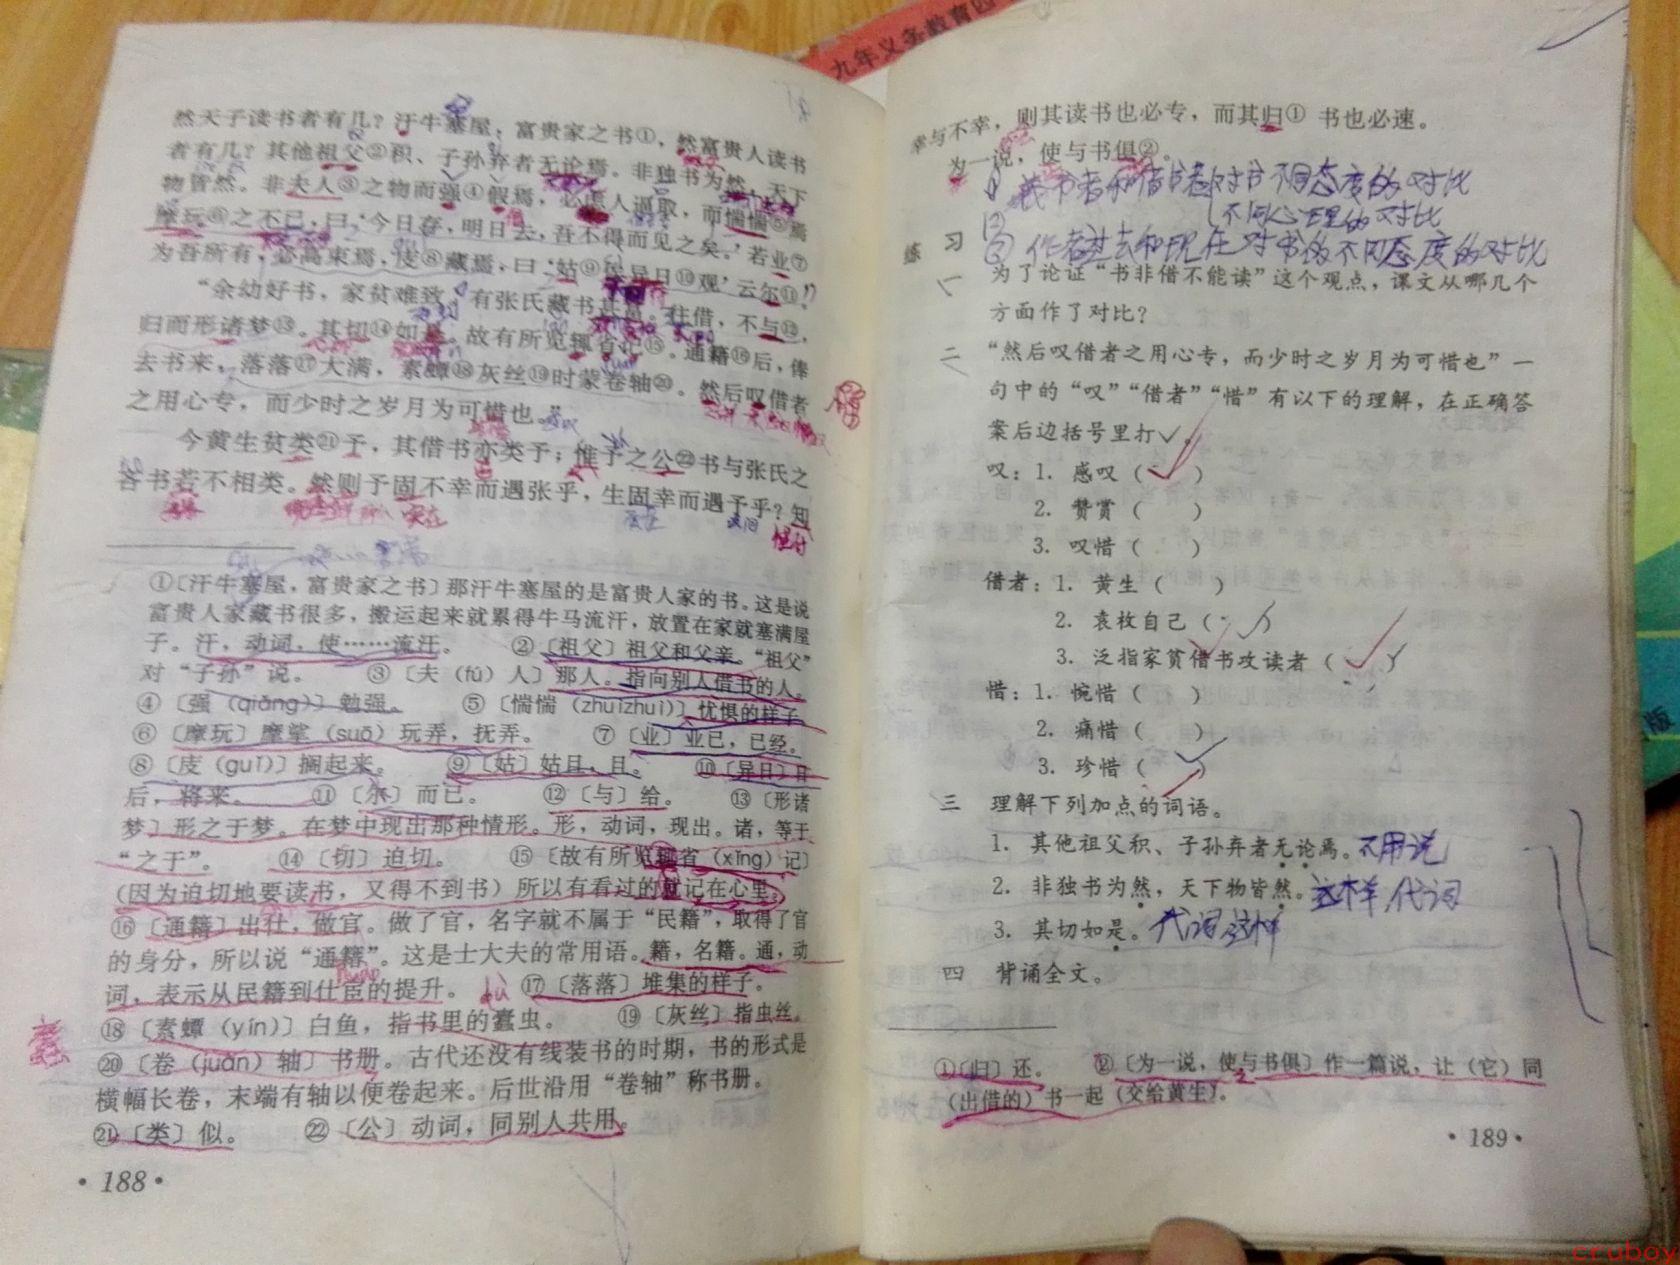 九年义务教育四
然天子读书者有几？汗牛塞屋，富贵家之书①，然富贵人读书
者有几？其他祖父②积、子孙弃者无论焉。非独书为然，天下
物皆然。非夫人③之物而强④假焉，必虑人逼取，而惴惴⑤焉
摩玩⑥之不已，曰，‘今日存，明日去，吾不得而见之矣。’若业⑦
为吾所有，必高束焉，庋⑧藏焉，曰‘姑⑨俟异日⑩观’云尔⑪。”
“余幼好书，家贫难致。有张氏藏书甚富。往借，不与⑫，
归而形诸梦⑬。其切⑭如是。故有所览辄省记⑮。通籍⑯后，俸
去书来，落落⑰大满，素蟫⑱灰丝⑲时蒙卷轴⑳。然后叹借者
之用心专，而少时之岁月为可惜也。”
今黄生贫类㉑予，其借书亦类予；惟予之公㉒书与张氏之
吝书若不相类。然则予固不幸而遇张乎，生固幸而遇予乎？知
①〔汗牛塞屋，富贵家之书〕那汗牛塞屋的是富贵人家的书。这是说
富贵人家藏书很多，搬运起来就累得牛马流汗，放置在家就塞满屋
子。汗，动词，使……流汗。 ②〔祖父〕祖父和父亲。“祖父”
对“子孙”说。 ③〔夫（fú）人〕那人。指向别人借书的人。
④〔强（qiǎng）〕勉强。 ⑤〔惴惴（zhuìzhuì）〕忧惧的样子
⑥〔摩玩〕摩挲（suō）玩弄，抚弄。 ⑦〔业〕业已，已经。
⑧〔庋（guǐ）〕搁起来。 ⑨〔姑〕姑且，且。 ⑩〔异日〕日
后，将来。 ⑪〔尔〕而已。 ⑫〔与〕给。 ⑬〔形诸
梦〕形之于梦。在梦中现出那种情形。形，动词，现出。诸，等于
“之于”。 ⑭〔切〕迫切。 ⑮〔故有所览辄省（xǐng）记〕
（因为迫切地要读书，又得不到书）所以有看过的就记在心里。
⑯〔通籍〕出仕，做官。做了官，名字就不属于“民籍”，取得了官
的身分，所以说“通籍”。这是士大夫的常用语。籍，名籍。通，动
词，表示从民籍到仕宦的提升。 ⑰〔落落〕堆集的样子。
⑱〔素蟫（yín）〕白鱼，指书里的蠹虫。 ⑲〔灰丝〕指虫丝。
⑳〔卷（juàn）轴〕书册。古代还没有线装书的时期，书的形式是
横幅长卷，末端有轴以便卷起来。后世沿用“卷轴”称书册。
㉑〔类〕似。 ㉒〔公〕动词，同别人共用。
·188·
幸与不幸，则其读书也必专，而其归①书也必速。
为一说，使与书俱②。
藏书者和借书者对书不同态度的对比
不同心理的对比
作者过去和现在对书的不同态度的对比
练 习
一 为了论证“书非借不能读”这个观点，课文从哪几个
方面作了对比？
二 “然后叹借者之用心专，而少时之岁月为可惜也”一
句中的“叹”“借者”“惜”有以下的理解，在正确答
案后边括号里打✓。
叹：1. 感叹（✓）
2. 赞赏（ ）
3. 叹惜（ ）
借者：1. 黄生（ ）
2. 袁枚自己（✓）
3. 泛指家贫借书攻读者（✓）
惜：1. 惋惜（ ）
2. 痛惜（ ）
3. 珍惜（✓）
三 理解下列加点的词语。
1. 其他祖父积、子孙弃者无论焉。不用说
2. 非独书为然，天下物皆然。这样，代词
3. 其切如是。代词 这样
四 背诵全文。
①〔归〕还。 ②〔为一说，使与书俱〕作一篇说，让（它）同
（出借的）书一起（交给黄生）。
·189·
版
cruboy